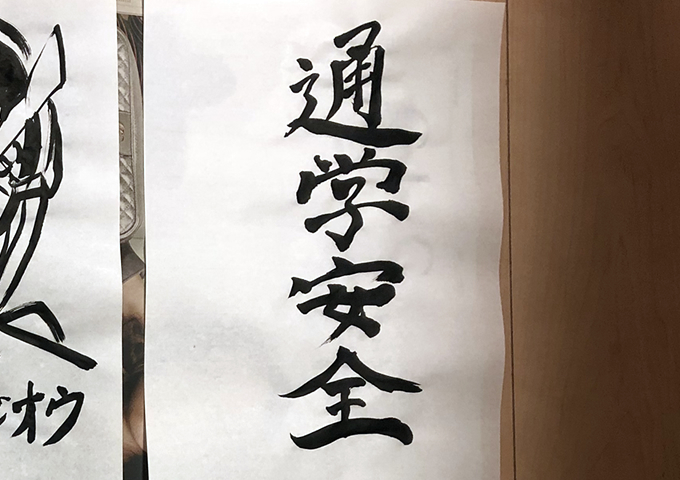 通学安全
オウ